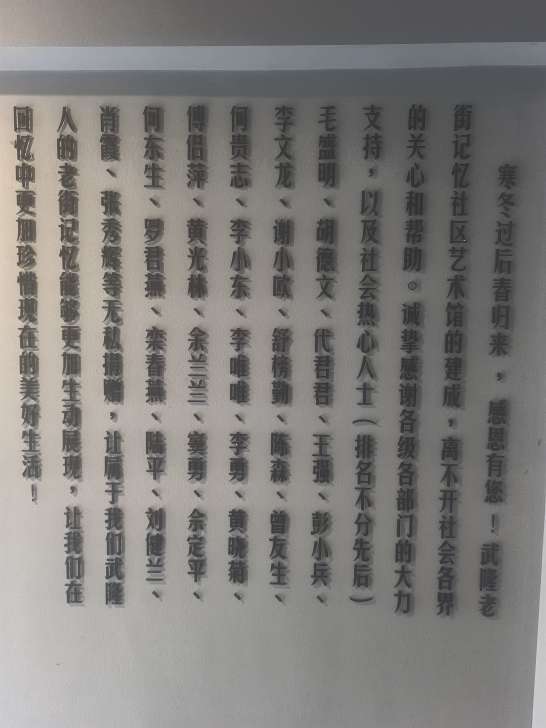 寒冬过后春归来，感恩有您！武隆老
街记忆社区艺术馆的建成，离不开社会各界
的关心和帮助。诚挚感谢各级各部门的大力
支持，以及社会热心人士(排名不分先后)
毛盛明、胡德文、代君君、王强、彭小兵、
李文龙、谢小欧、舒榜勤、陈森、曾友生、
何贵志、李小东、李唯唯、李勇、黄晓菊、
傅倡萍、黄光林、余兰兰、窦勇、余定平、
何东生、罗君燕、栾春燕、陆平、刘健兰、
肖霞、张秀辉等无私捐赠，让属于我们武隆
人的老街记忆能够更加生动展现，让我们在
回忆中更加珍惜现在的美好生活！